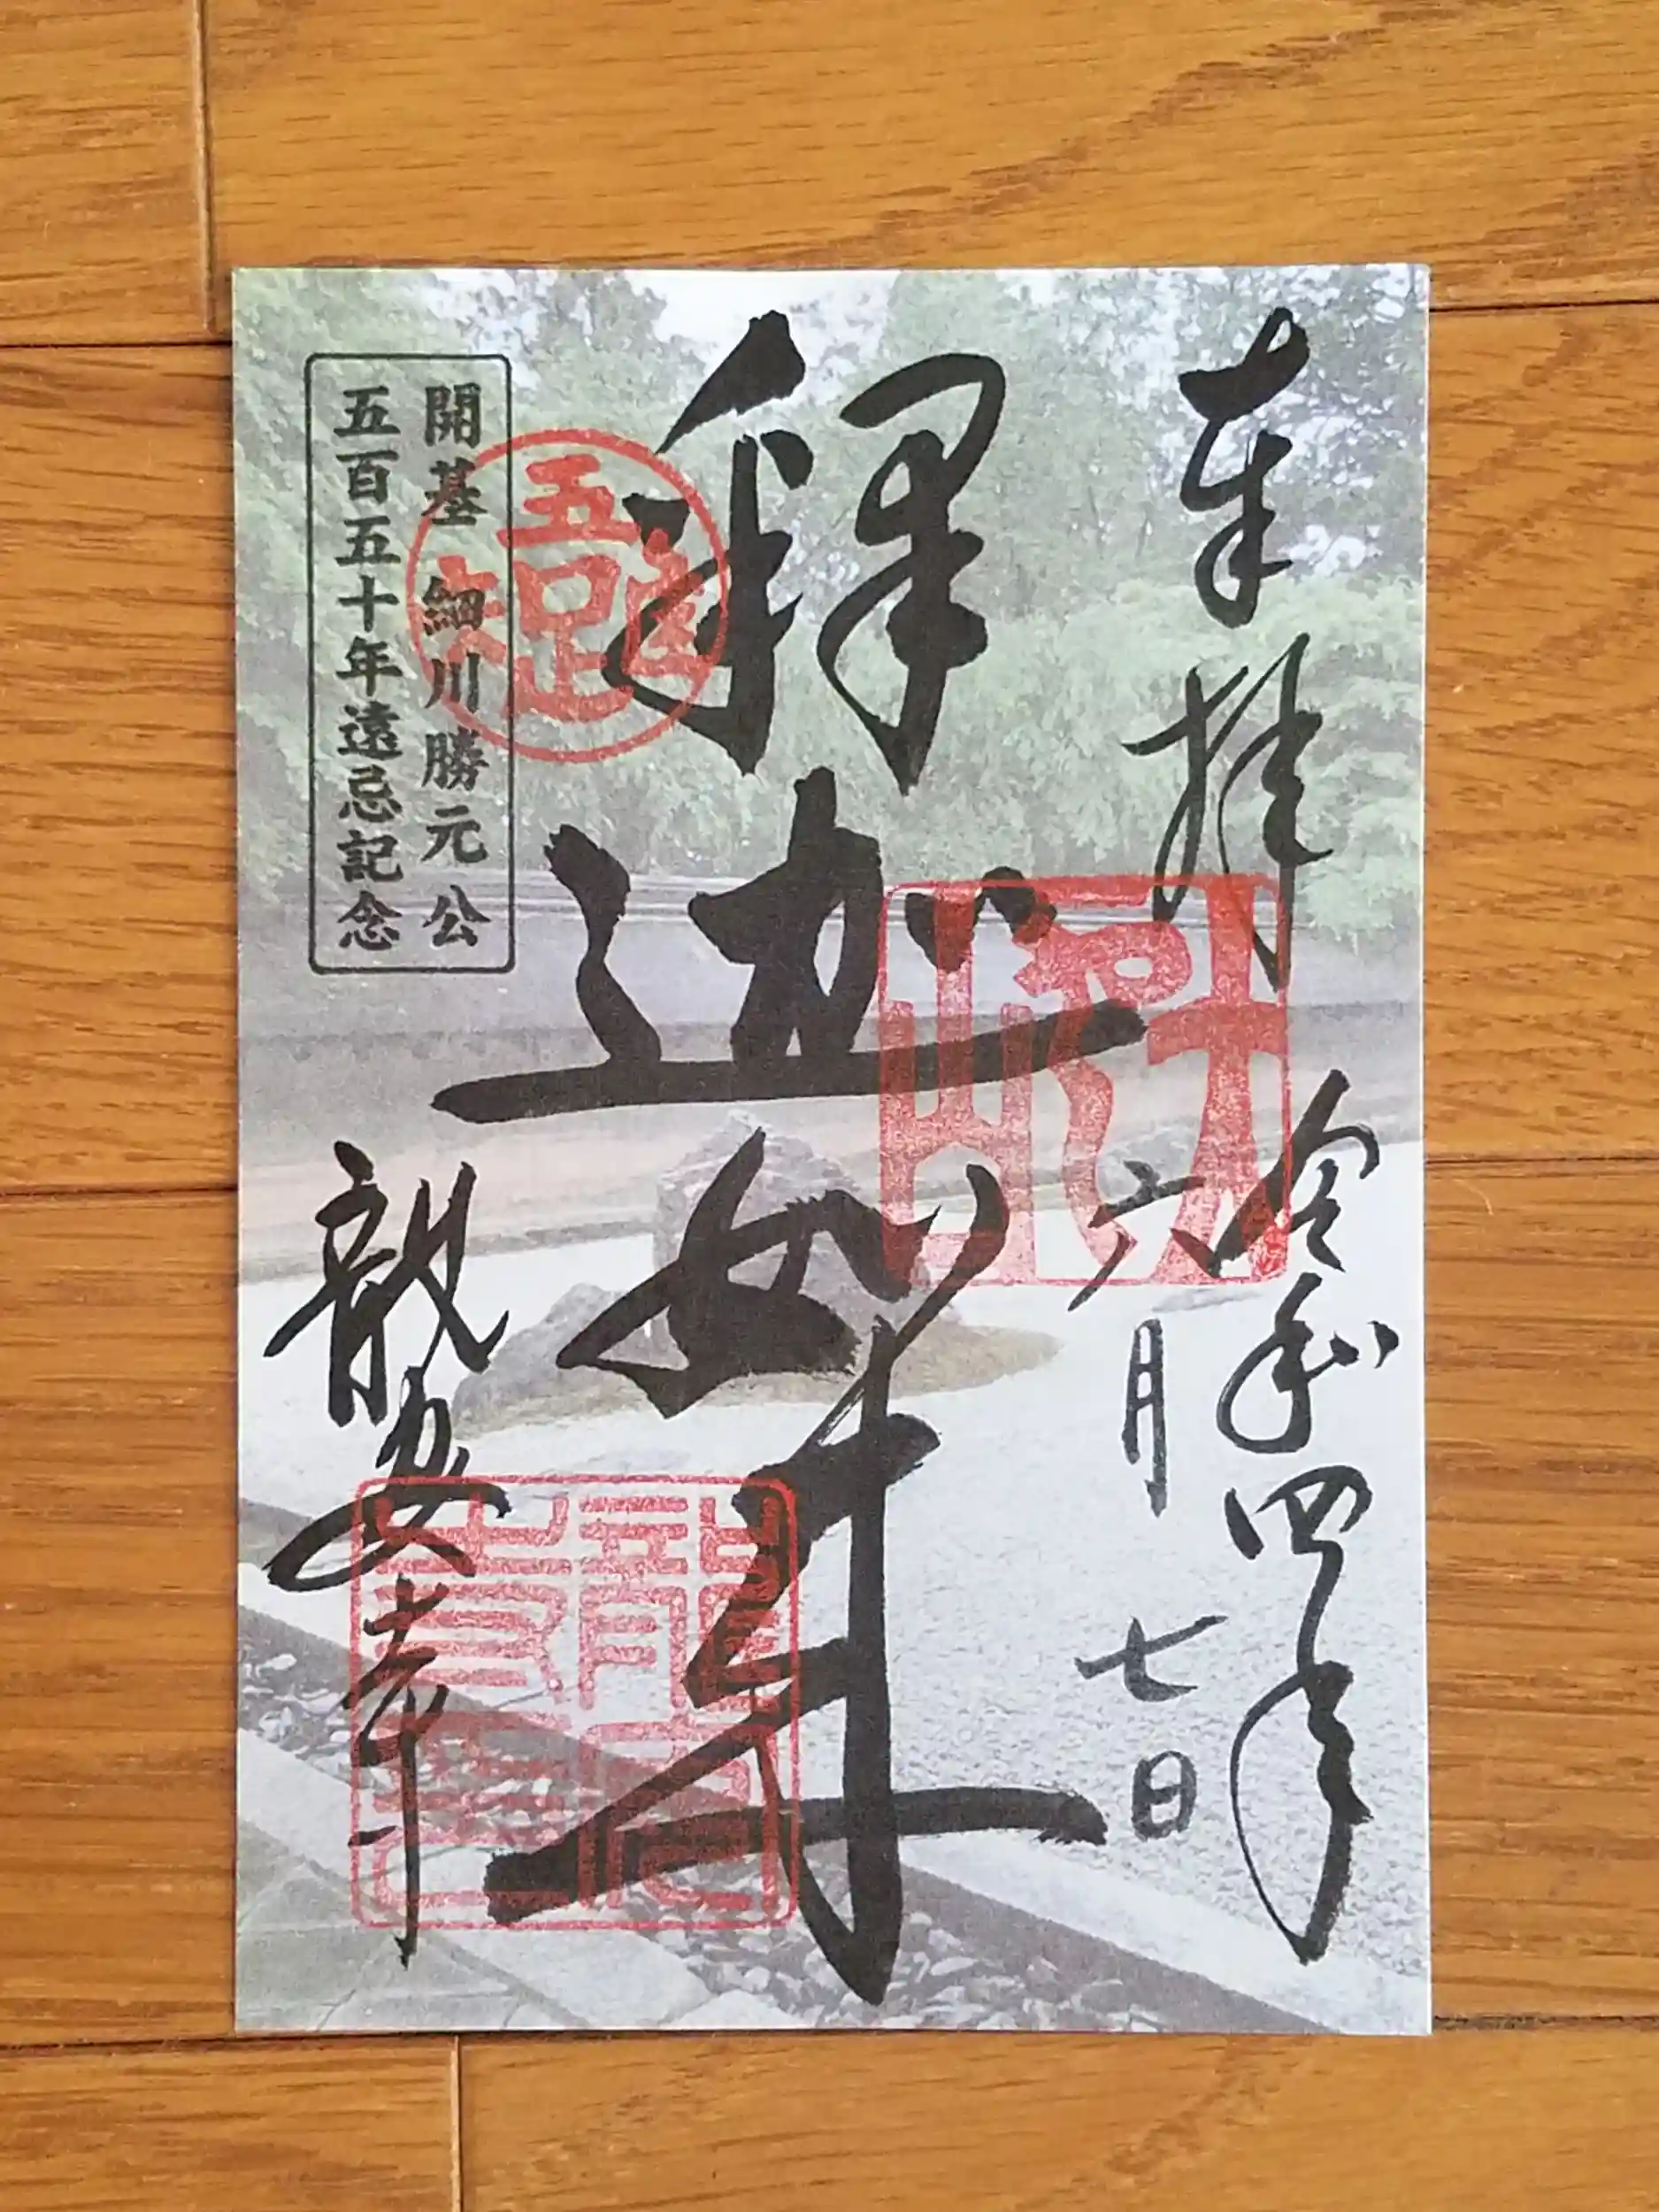 奉拝
令和四年
六月
七日
釋迦如来
開基 細川勝元公
五百五十年遠忌記念
龍安寺
吾唯足知